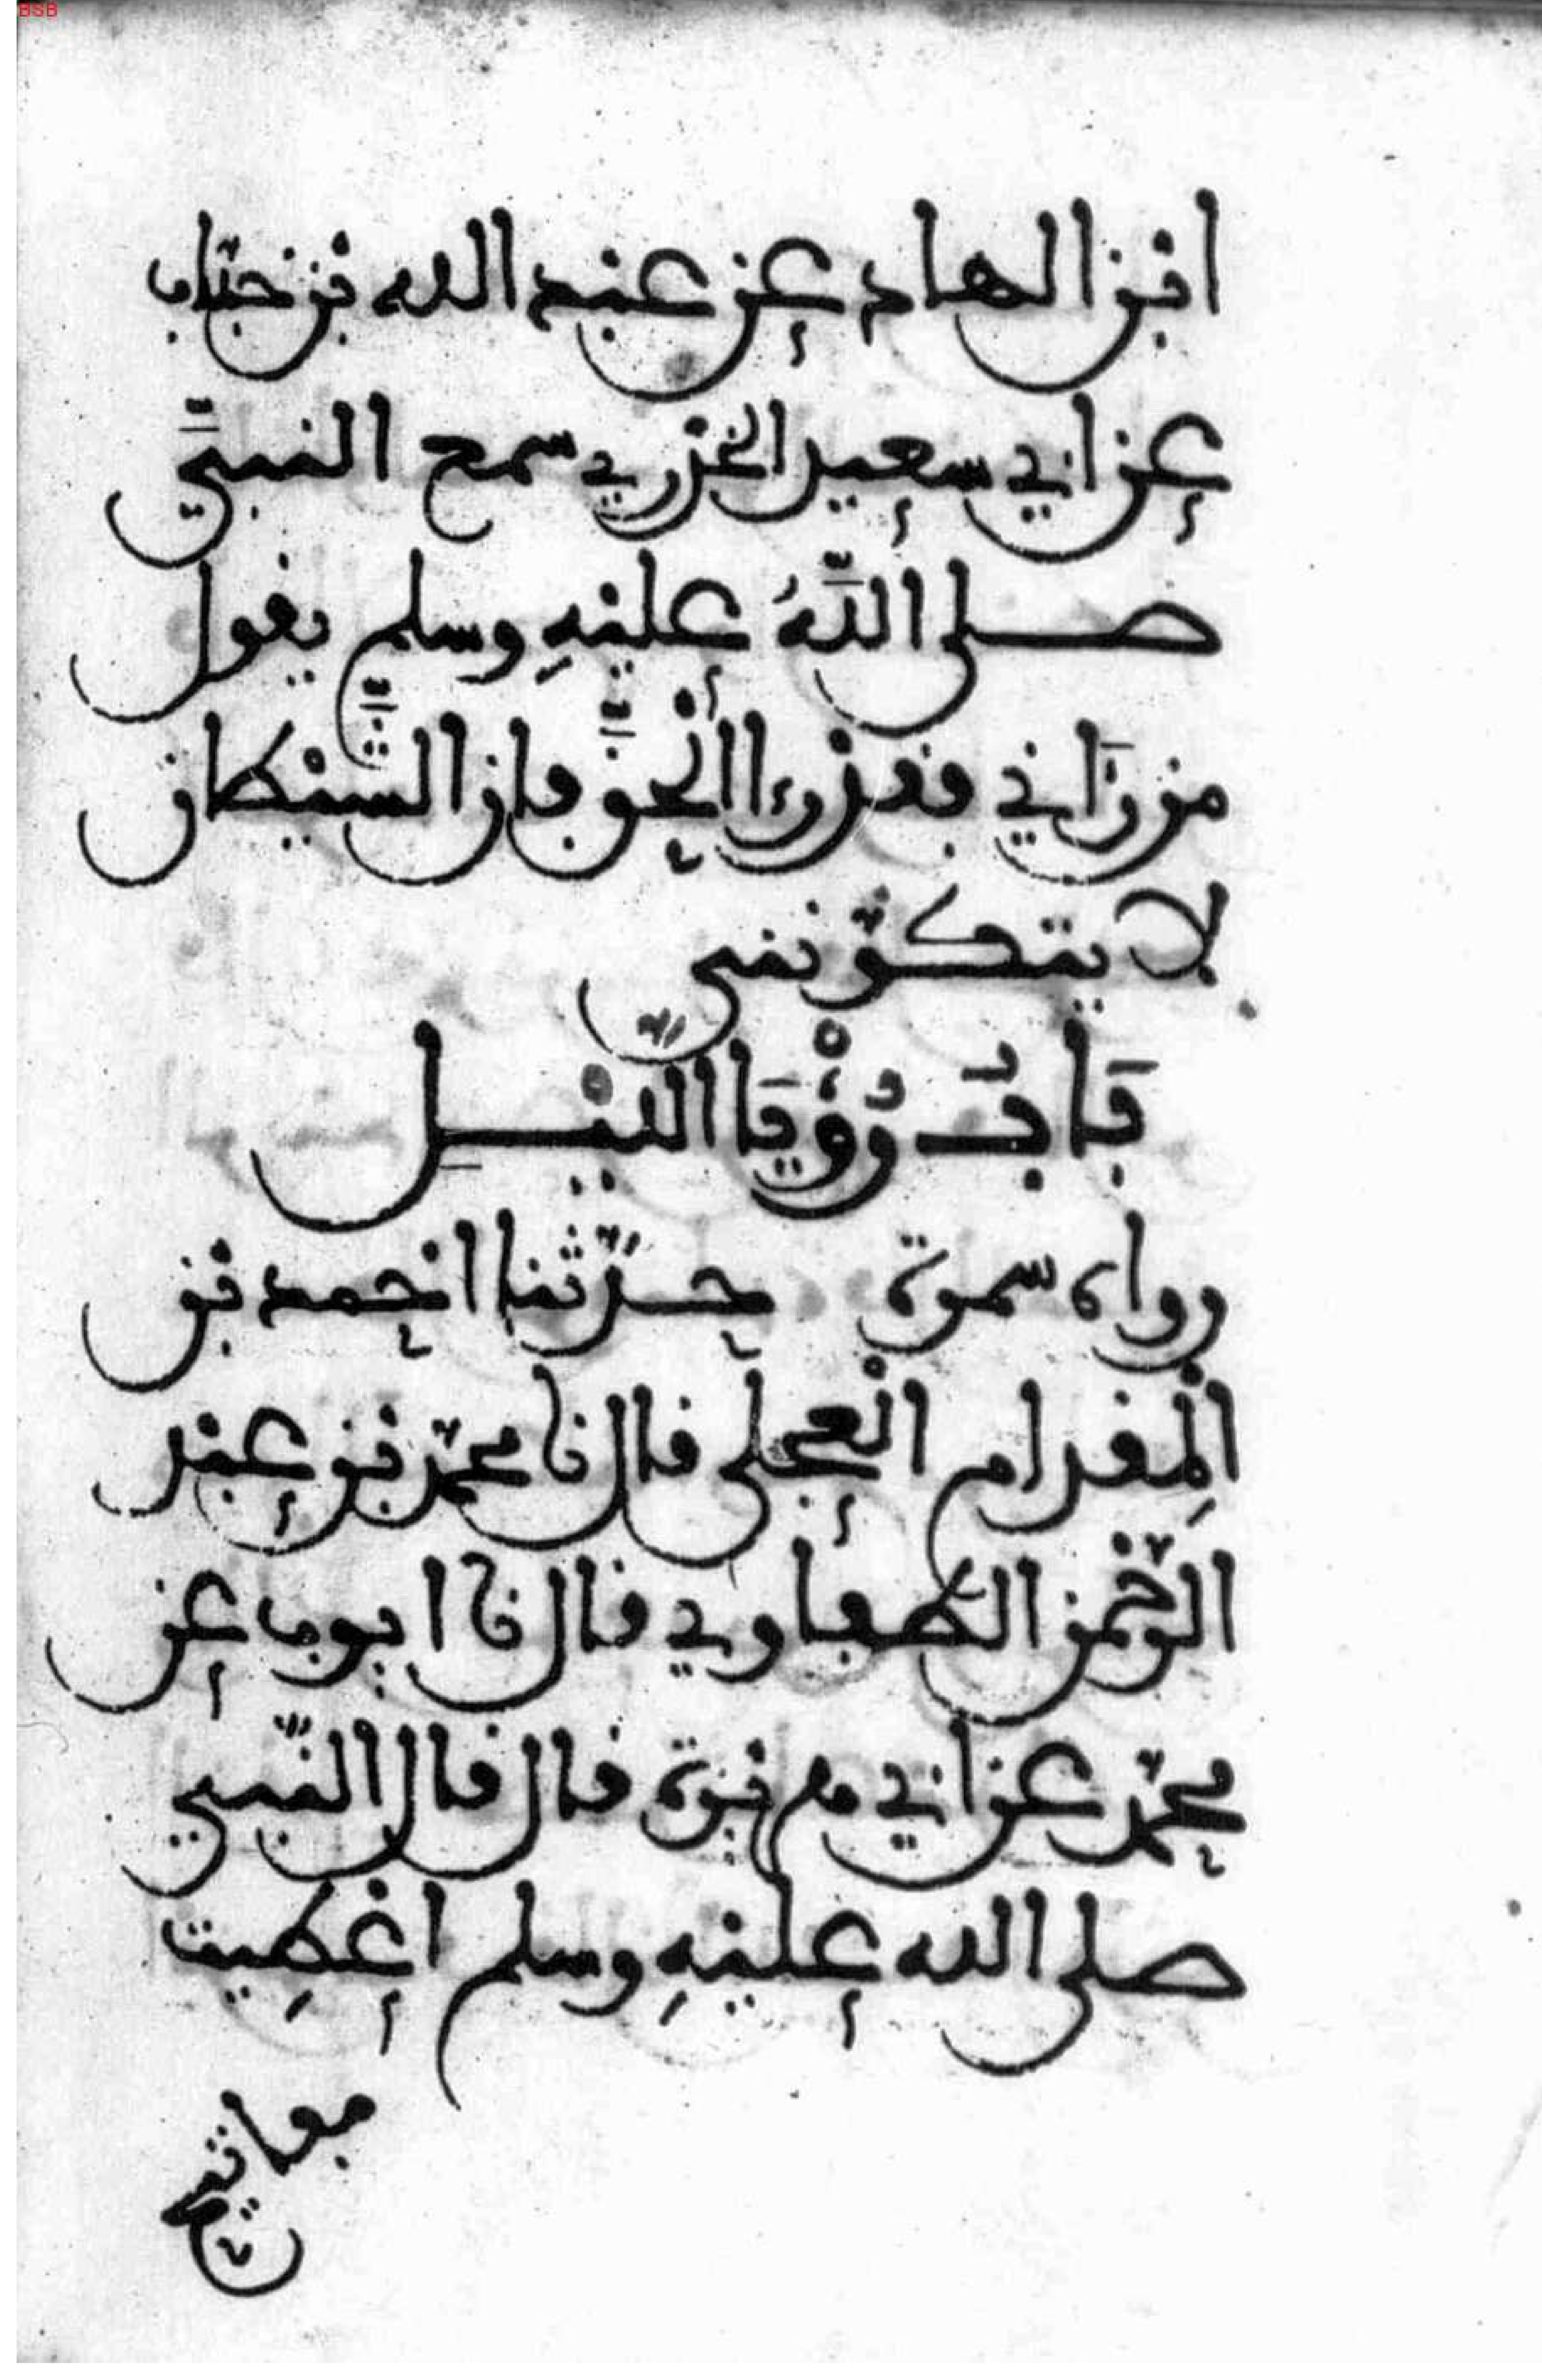 BSB
ابن الهاد عن عبد الله بن خبّاب
عن ابي سعيد الخدري سمع النبيَّ
صلى اللَّهُ عليْهِ وسلم يقول
من رَآني فقد رءا الْحقَّ فإن الشَّيْطان
لا يتكوّنني
بَابُ رُؤْيَا اللّيْل
رواه سمرة حدّثنا احْمد بن
الْمِقدام الْعجلي قال نا محمّد بن عبْد
الرّحْمن الطفاوي قال نا ايوب عن
محمّد عن ابي هريرة قال قال النّبي
صلى الله عليْهِ وسلم اعْطِيت
مفاتيح